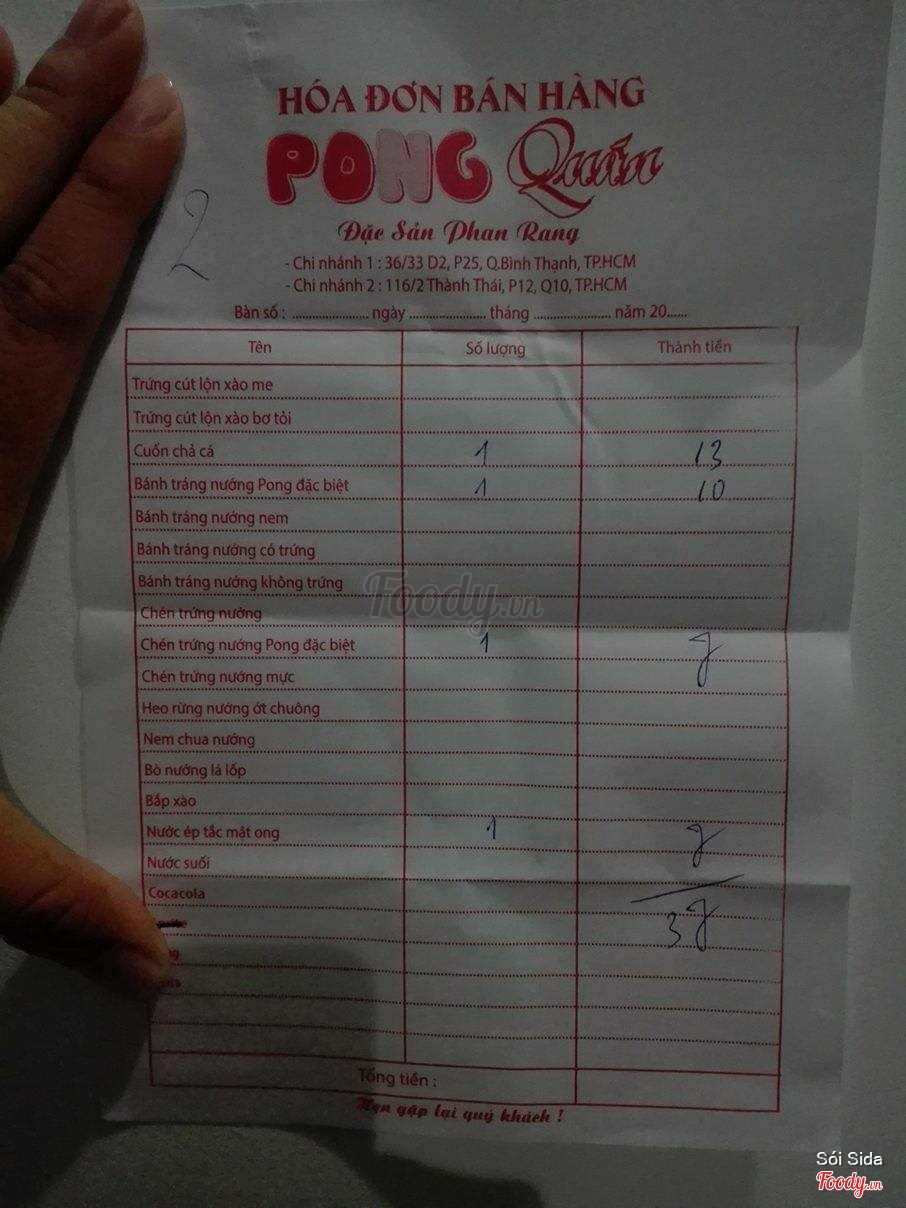 HÓA ĐƠN BÁN HÀNG
PONG Quán
2
Đặc Sản Phan Rang
- Chi nhánh 1 : 36/33 D2, P25, Q.Bình Thạnh, TP.HCM
- Chi nhánh 2 : 116/2 Thành Thái, P12, Q10, TP.HCM
Bàn số : ........................ ngày ........................ tháng ........................ năm 20......
Tên Số lượng Thành tiền
Trứng cút lộn xào me
Trứng cút lộn xào bơ tỏi
Cuốn chả cá 1 13
Bánh tráng nướng Pong đặc biệt 1 10
Bánh tráng nướng nem
Bánh tráng nướng có trứng
Bánh tráng nướng không trứng
Foody.vn
Chén trứng nướng
Chén trứng nướng Pong đặc biệt 1 7
Chén trứng nướng mực
Heo rừng nướng ớt chuông
Nem chua nướng
Bò nướng lá lốp
Bắp xào
Nước ép tắc mật ong 1 7
Nước suối
Cocacola
37
Tổng tiền :
Hẹn gặp lại quý khách !
Sói Sida
Foody.vn